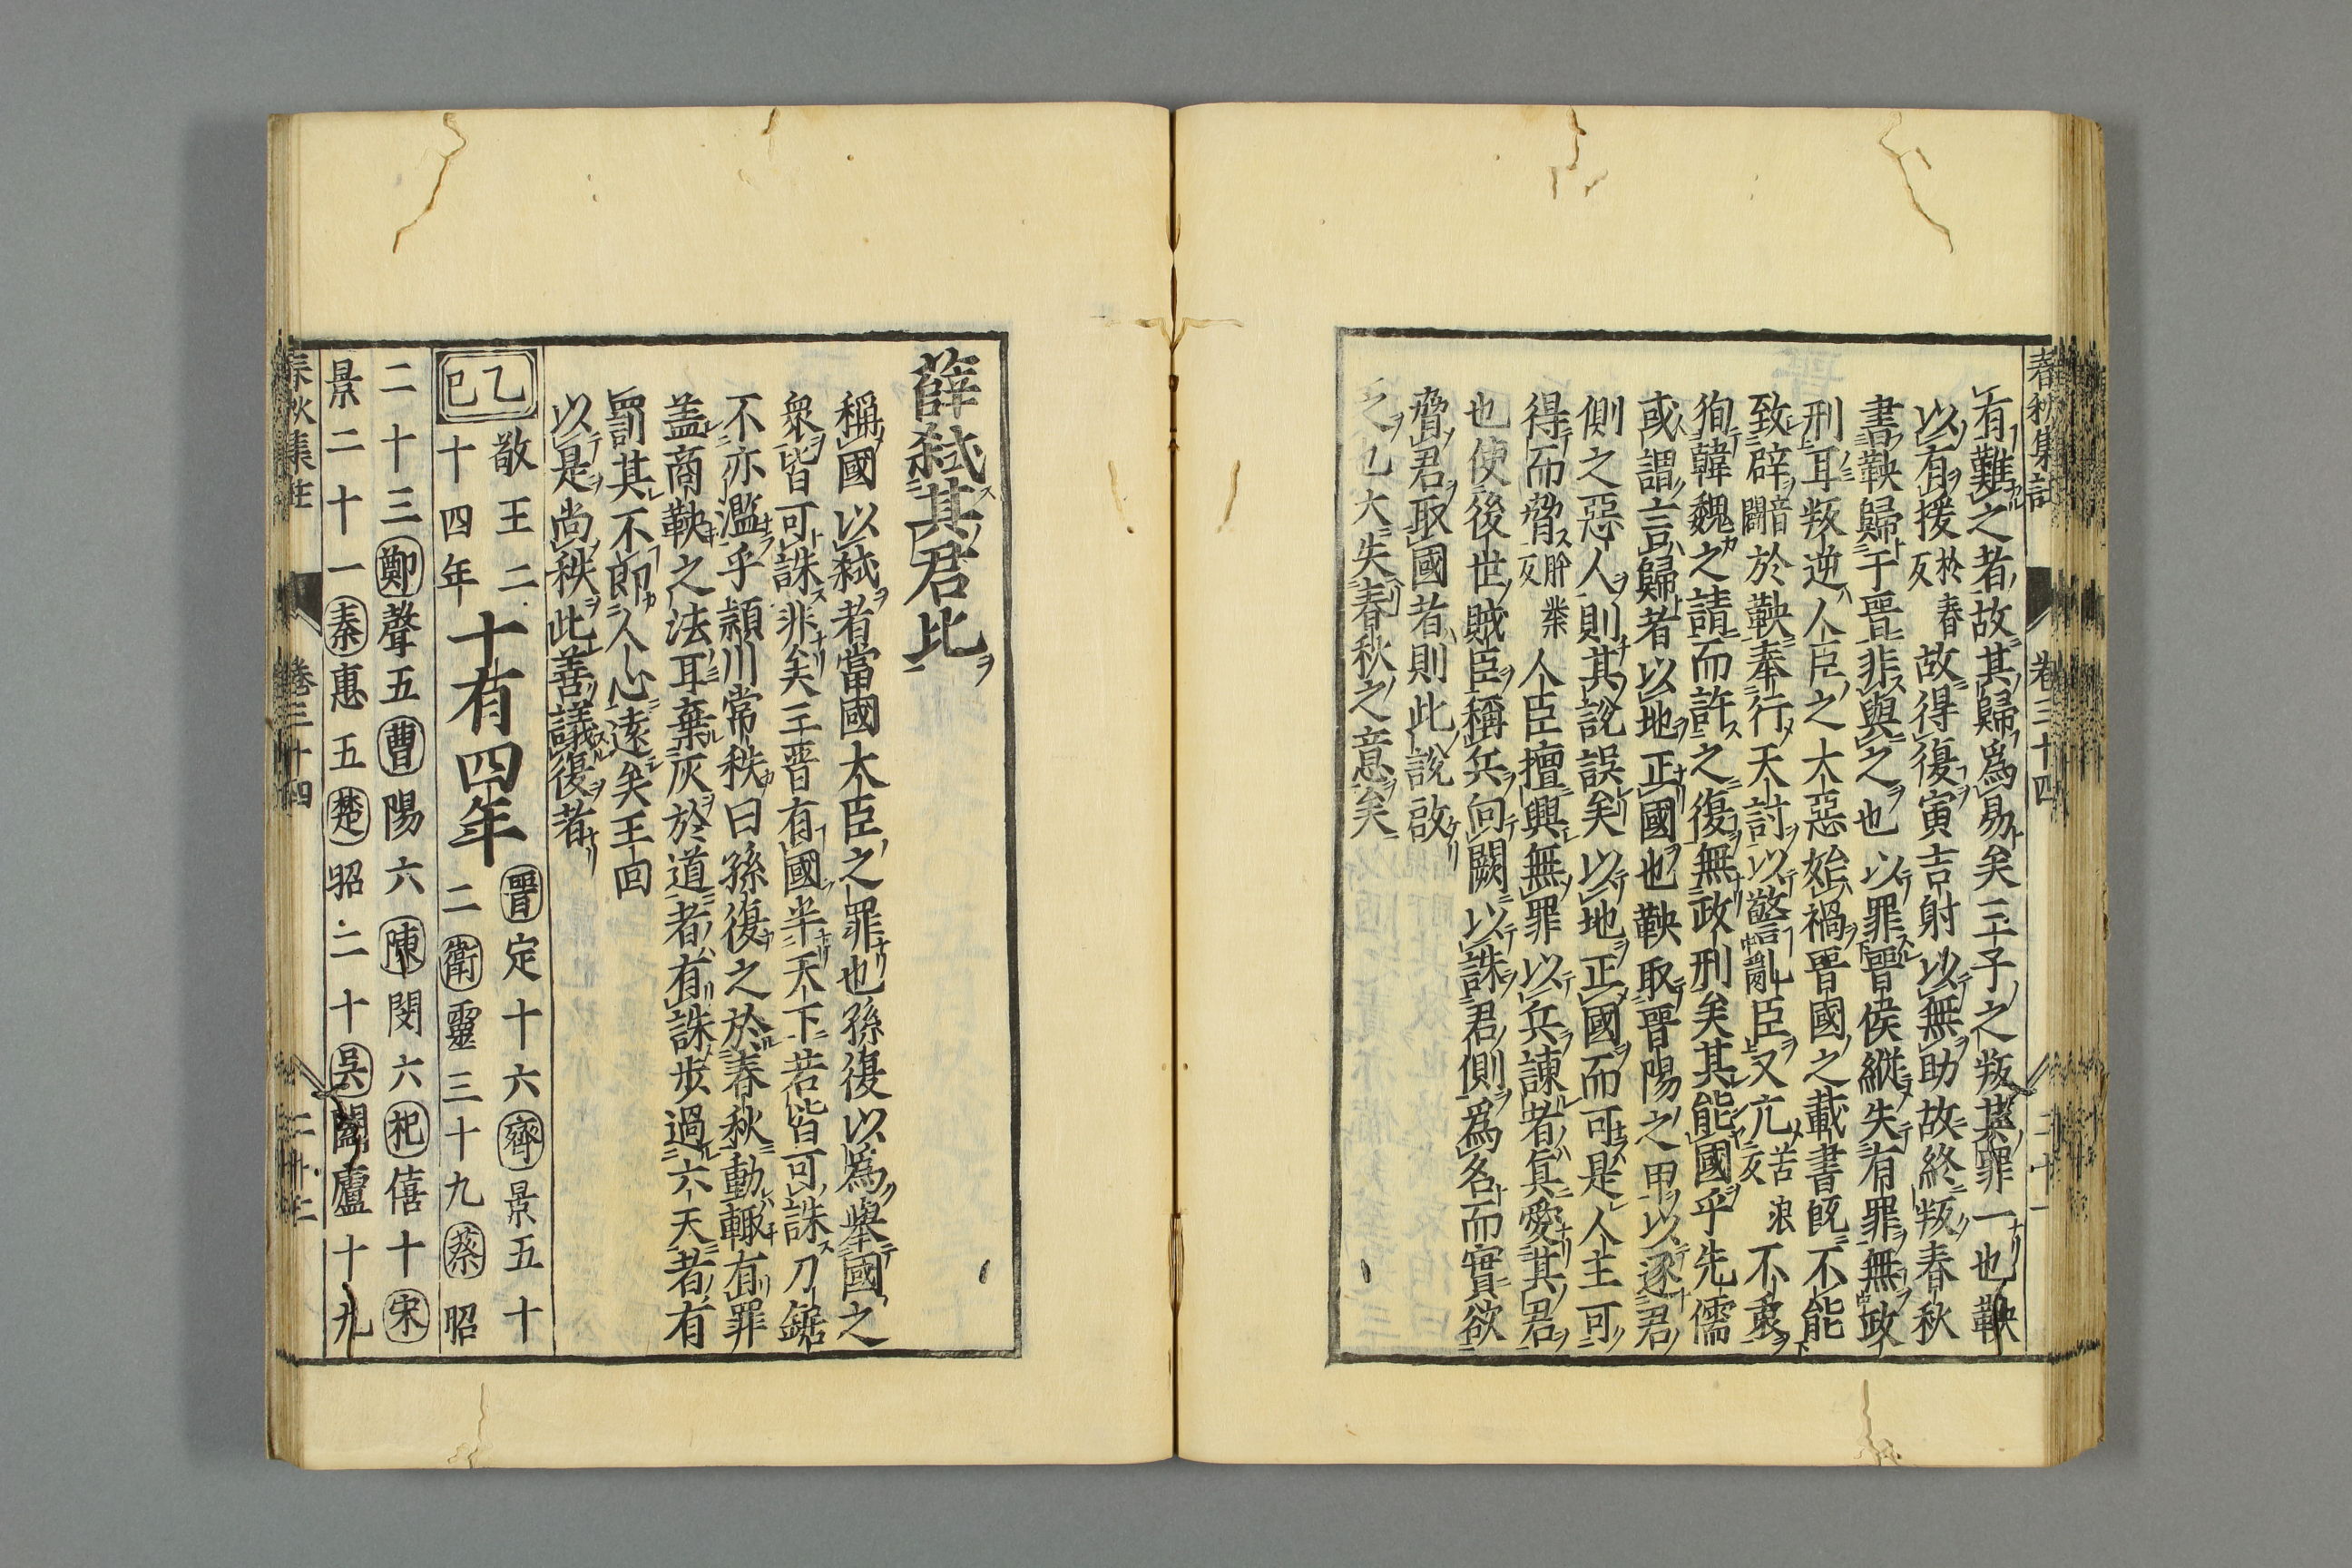 春秋集註 卷三十四 二十一
有難之者故其歸爲易矣三子之叛其罪一也鞅
以有援於春反故得復寅吉射以無助故終叛春秋
書鞅歸于晋非與之也以罪晋侯縱失有罪無政
刑耳叛逆人臣之大惡始禍晋國之載書旣不能
致辟音闢於鞅奉行天討以警亂臣又亢苦浪反不衷
狥韓魏之請而許之復無政刑矣其能國乎先儒
或謂言歸者以地正國也鞅取晋陽之甲以逐君
側之惡人則其說誤矣以地正國而可是人主可
得而脅人臣擅興無罪以兵諫者眞愛其君
也使後世賊臣稱兵向闕以誅君側爲名而實欲
脅君取國者則此說啟
之也大失春秋之意矣
薛弒其君比
稱國以弒者當國大臣之罪也孫復以爲舉國之
衆皆可誅非矣三晋有國半天下若皆可誅刀鋸
不亦濫乎頴川常秩曰孫復之於春秋動輒有罪
盖商鞅之法耳棄灰於道者有誅步過六天者有
罰其不卽人心遠矣王回
以是尚秩此善議復者
乙巳 敬王二十四年 十有四年 晋定十六齊景五十
二衛靈三十九蔡昭
二十三鄭聲五曹陽六陳閔六杞僖十宋
景二十一秦惠五楚昭二十吳闔廬十九
春秋集註 卷三十四